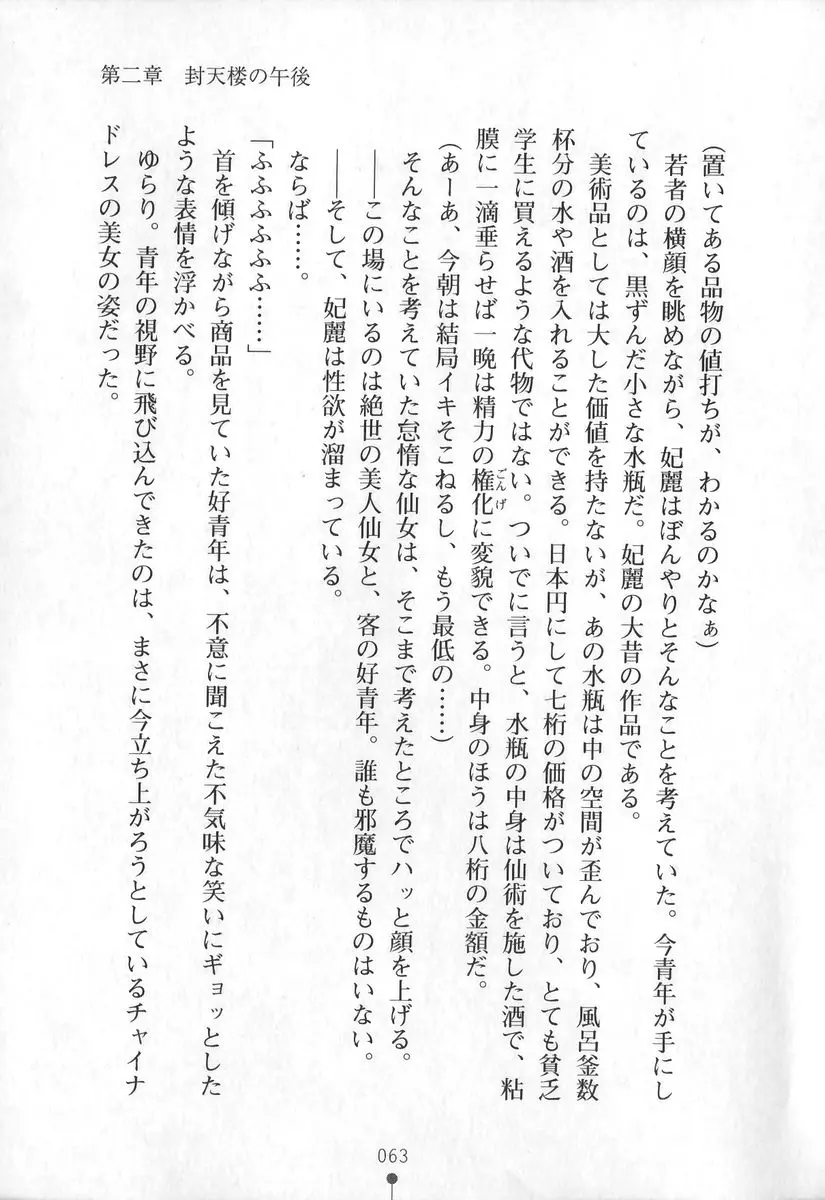 第二章　封天楼の午後
（置いてある品物の値打ちが、わかるのかなぁ）
　若者の横顔を眺めながら、妃麗はぼんやりとそんなことを考えていた。今青年が手にし
ているのは、黒ずんだ小さな水瓶だ。妃麗の大昔の作品である。
　美術品としては大した価値を持たないが、あの水瓶は中の空間が歪んでおり、風呂釜数
杯分の水や酒を入れることができる。日本円にして七桁の価格がついており、とても貧乏
学生に買えるような代物ではない。ついでに言うと、水瓶の中身は仙術を施した酒で、粘
膜に一滴垂らせば一晩は精力の権化に変貌できる。中身のほうは八桁の金額だ。
ごんげ
（あーあ、今朝は結局イキそこねるし、もう最低の……）
　そんなことを考えていた怠惰な仙女は、そこまで考えたところでハッと顔を上げる。
　――この場にいるのは絶世の美人仙女と、客の好青年。誰も邪魔するものはいない。
　――そして、妃麗は性欲が溜まっている。
　ならば……。
「ふふふふふふ……」
　首を傾げながら商品を見ていた好青年は、不意に聞こえた不気味な笑いにギョッとした
ような表情を浮かべる。
　ゆらり。青年の視野に飛び込んできたのは、まさに今立ち上がろうとしているチャイナ
ドレスの美女の姿だった。
063